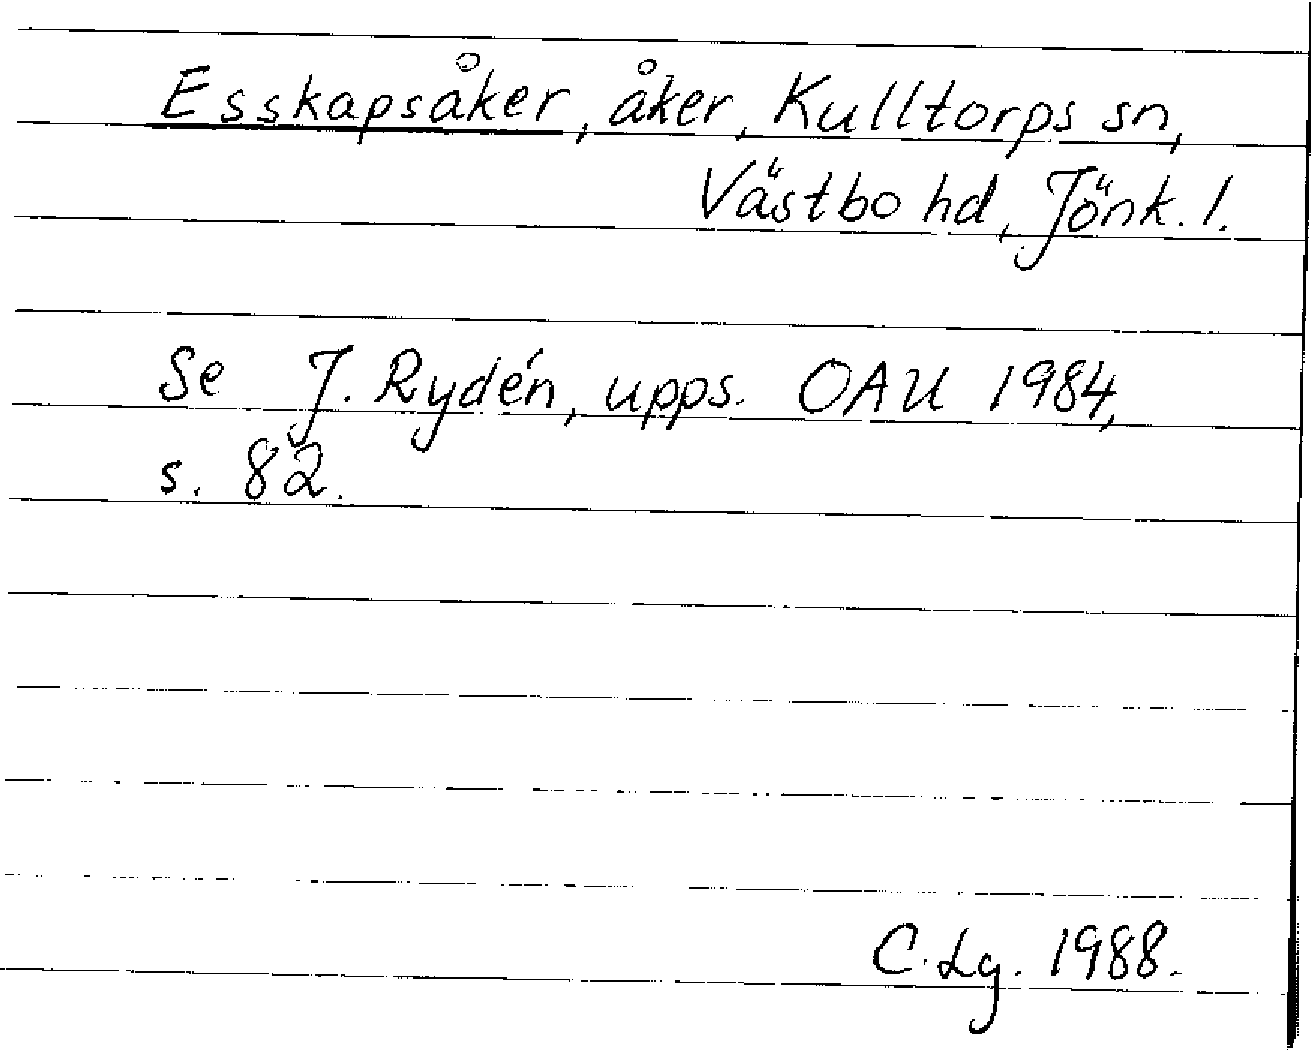 Esskapsåker, åker, Kulltorps sn,
Västbo hd, Jönk. l.
Se J. Rydén, upps. OAU 1984,
s. 82.
C. Lg. 1988.